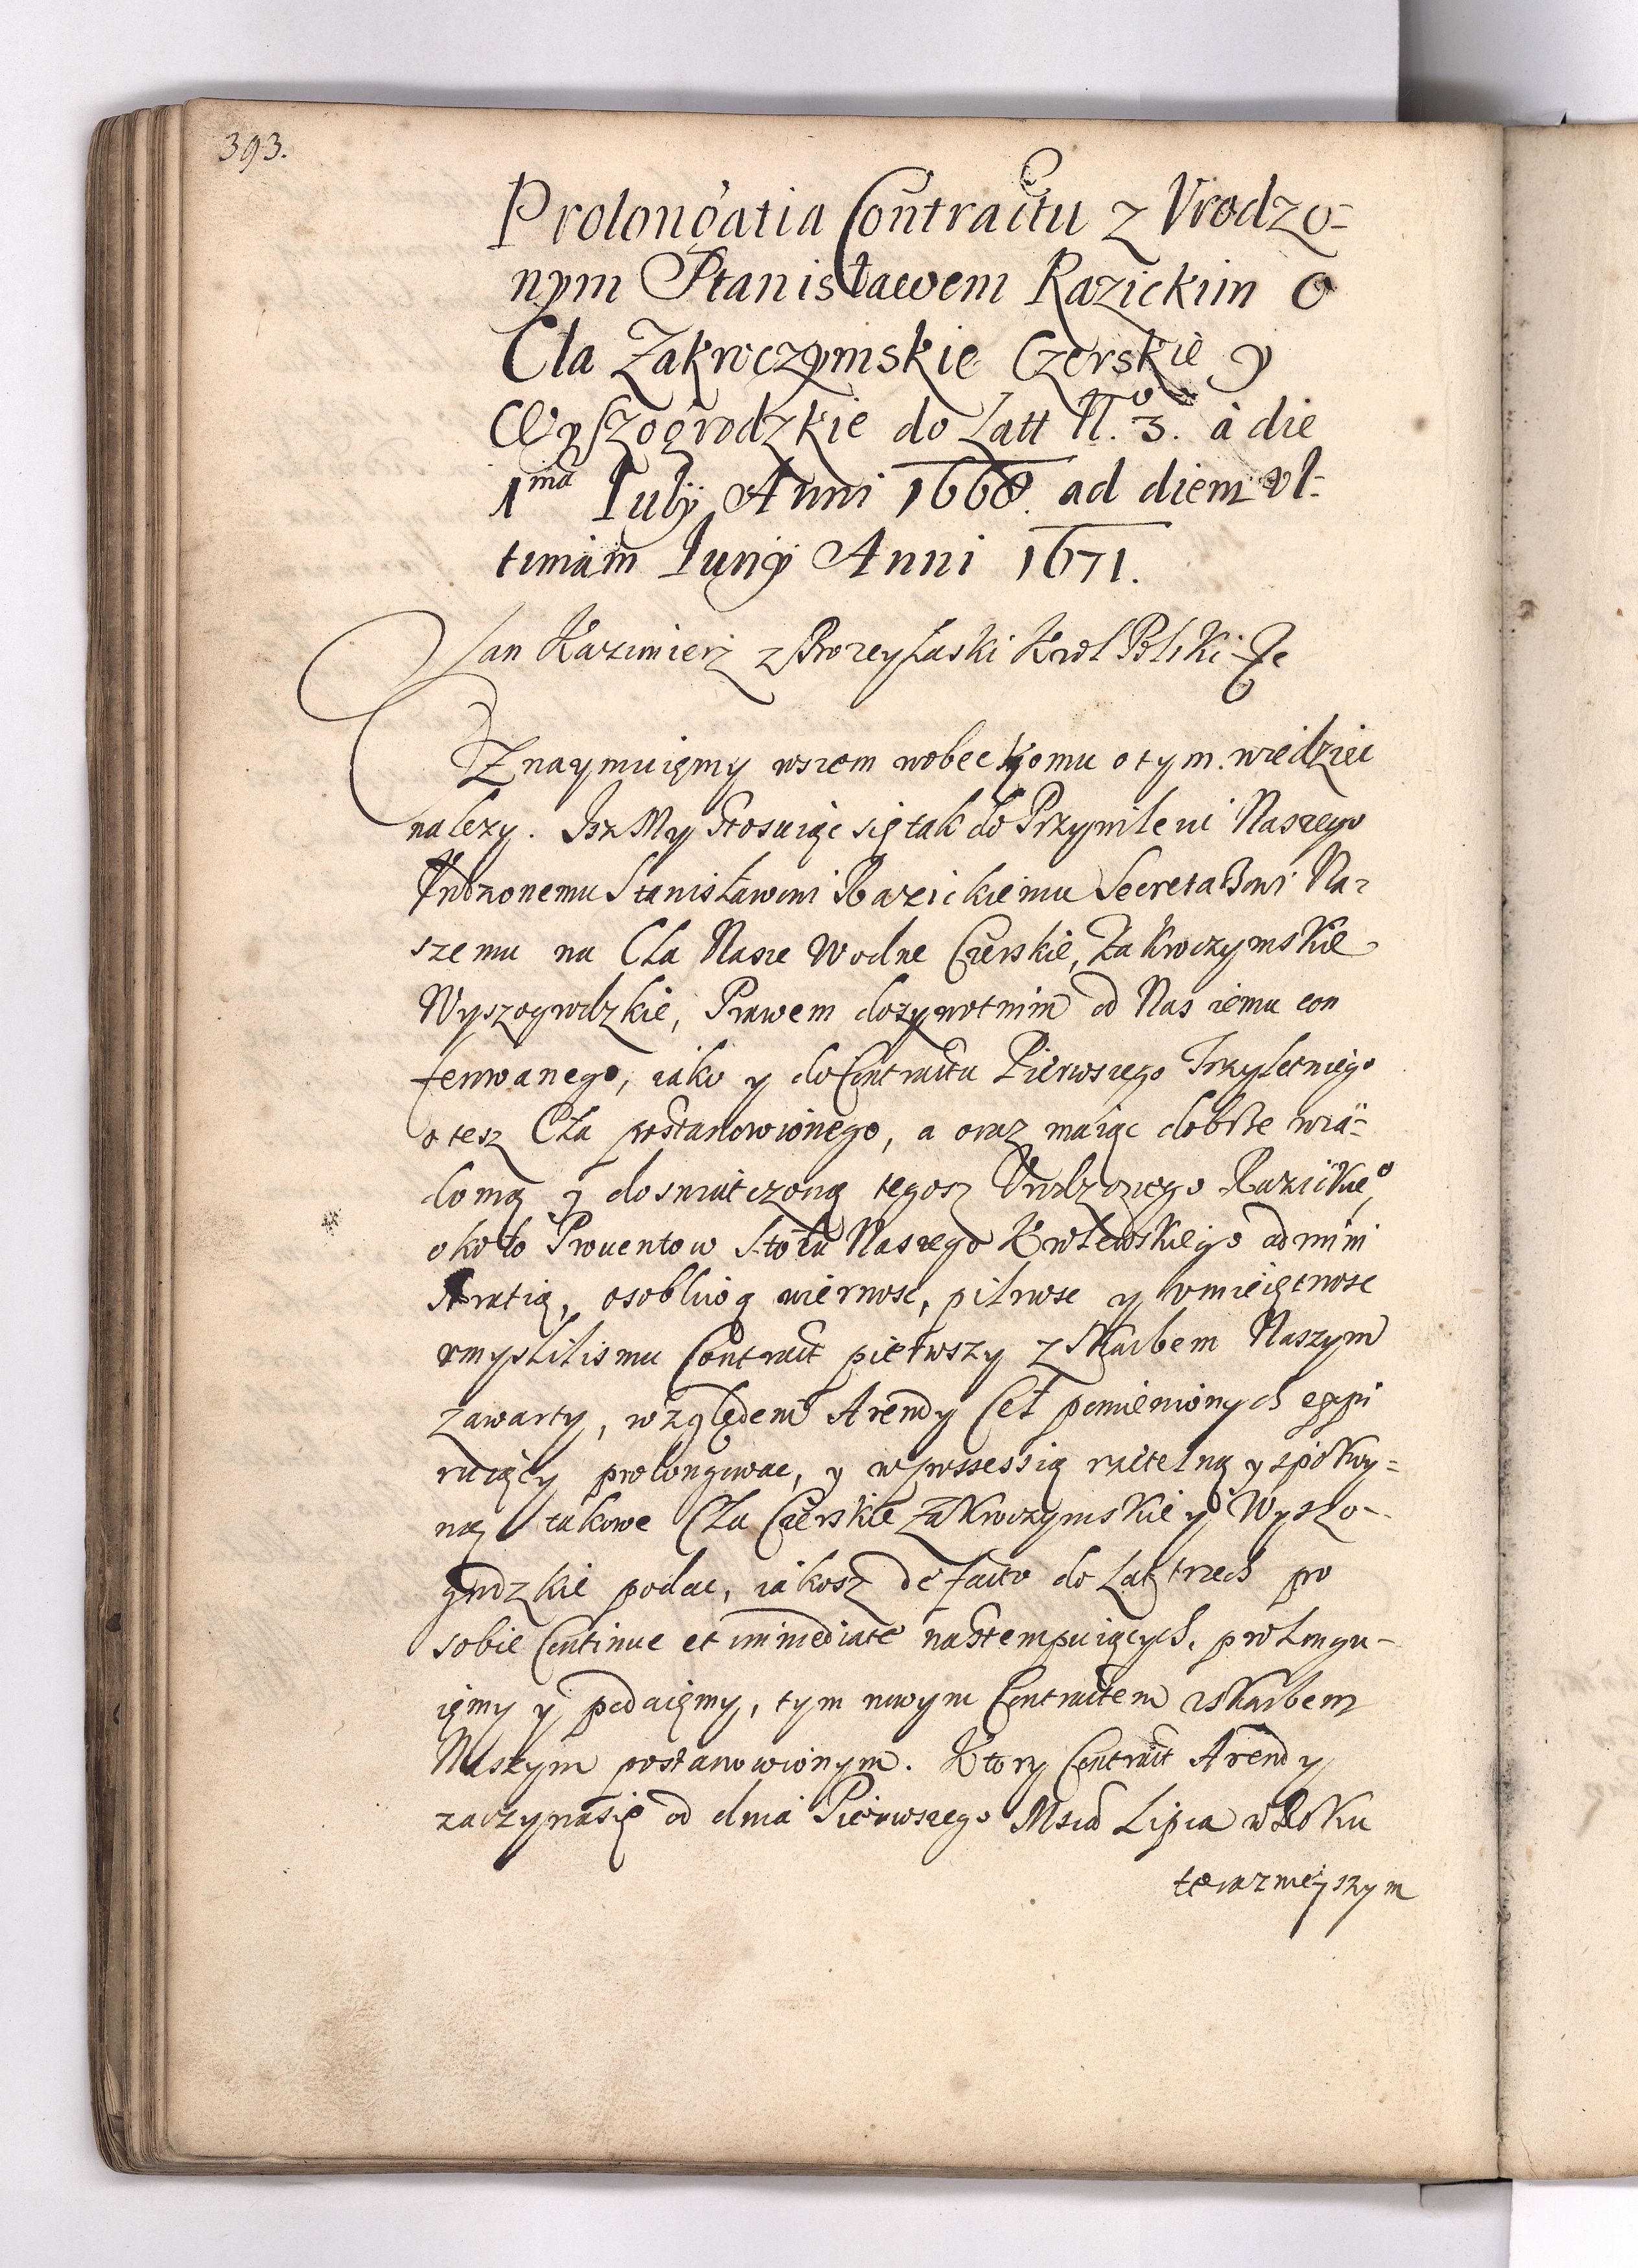 393.
Prolongatia Contractu z Vrodzo=
nym Stanisławem Razickim o
Cla Zakroczymskie Czerskie y
Wyszogrodzkie do Latt N.º 3. à die
1ma Iuly Anni 1668. ad diem vl=
timam Iuny Anni 1671.
Jan Kazimierz z Bozey Łaski Krol Polski &c
Oznaymuięmy wszem wobec komu o tym wiedziec
nalezy. Isz My stosuiąc się tak do Przywileiu Naszego
Vrodzonemu Stanisławowi Razickiemu Secretarzowi Na=
szemu na Cła Nasze Wodne Czerskie, Zakroczymskie
Wyszogrodzkie, Prawem dozywotnim od Nas iemu con
ferowanego, iako y do Contractu Pierwszego Trzyletniego
o tesz Cła postanowionego, a oraz maiąc dobrze wia=
domą y doswiatczoną tegosz Vrodzonego Razickieo
około Prouentow Stołu Naszego Krolewskiego admini
stratią, osobliwą wiernosc, pilnosc y vmieiętnosc
vmyslilismy Contract pierwszy z Skarbem Naszym
zawarty, względem Arendy Ceł pomienionych expi
ruiący prolongowac, y w possessią rzetelną y spokoy=
ną takowe Cła Czerskie Zakroczymskie y Wyszo=
grodzkie podac, iakosz de facto do Lat trzech po
sobie Continue et immediate nastempuiących, prolongu=
ięmy y podaięmy, tym nowym Contractem z Skarbem
Naszym postanowionym. Ktory Contract Arendy
zaczyna się od dnia Pierwszego Msca Lipca w Roku
terazneyszym